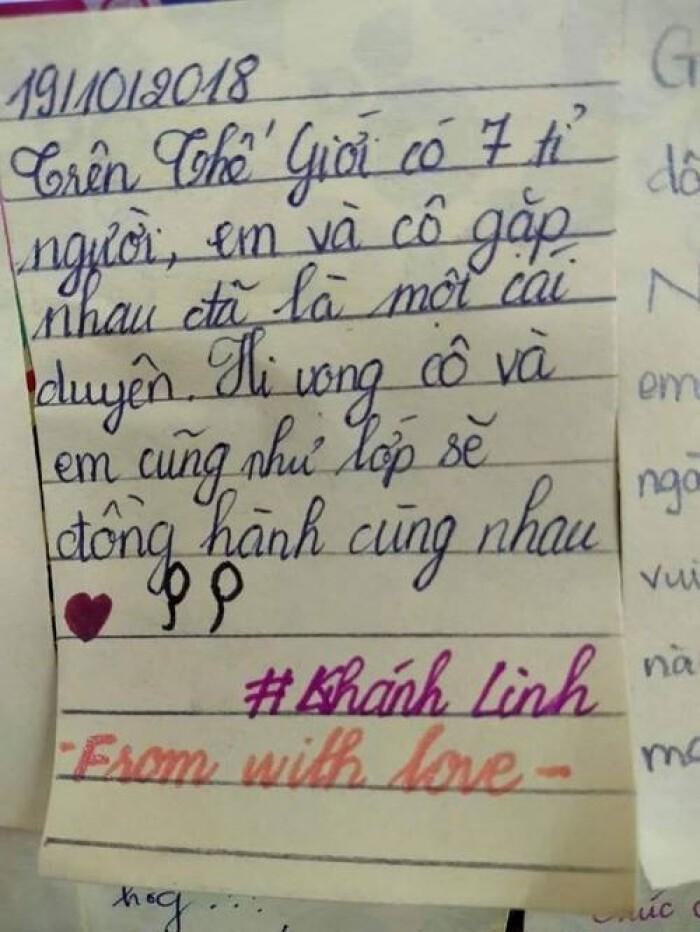 19/10/2018
Trên Thế Giới có 7 tỉ
người, em và cô gặp
nhau đã là một cái
duyên. Hi vọng cô và
em cũng như lớp sẽ
đồng hành cùng nhau
#Khánh Linh
-From with love-
G
dô
N
em
ngà
vui
nà